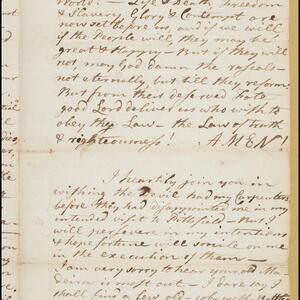 World! — Life & Death, Freedom
& Slavery, Glory & Contempt are
now set before us, and if we will
if the People will, they may be
great & Happy — But if they will
not, may God damn the rascals —
not eternally, but till they reform.
But from their deserved Fate
good Lord deliver us who wish to
obey thy Law — the Law of truth
& righteousness! AMEN!
I heartily join you in
wishing the Devil had my Carpenters
before they had disappointed me in my
intended visit to Pittsfield — But I
will persevere in my intentions
& hope fortune will smile on me
in the execution of them —
I am very sorry to hear your old Ma-
deira is most out — I dare say I
shall find a few old